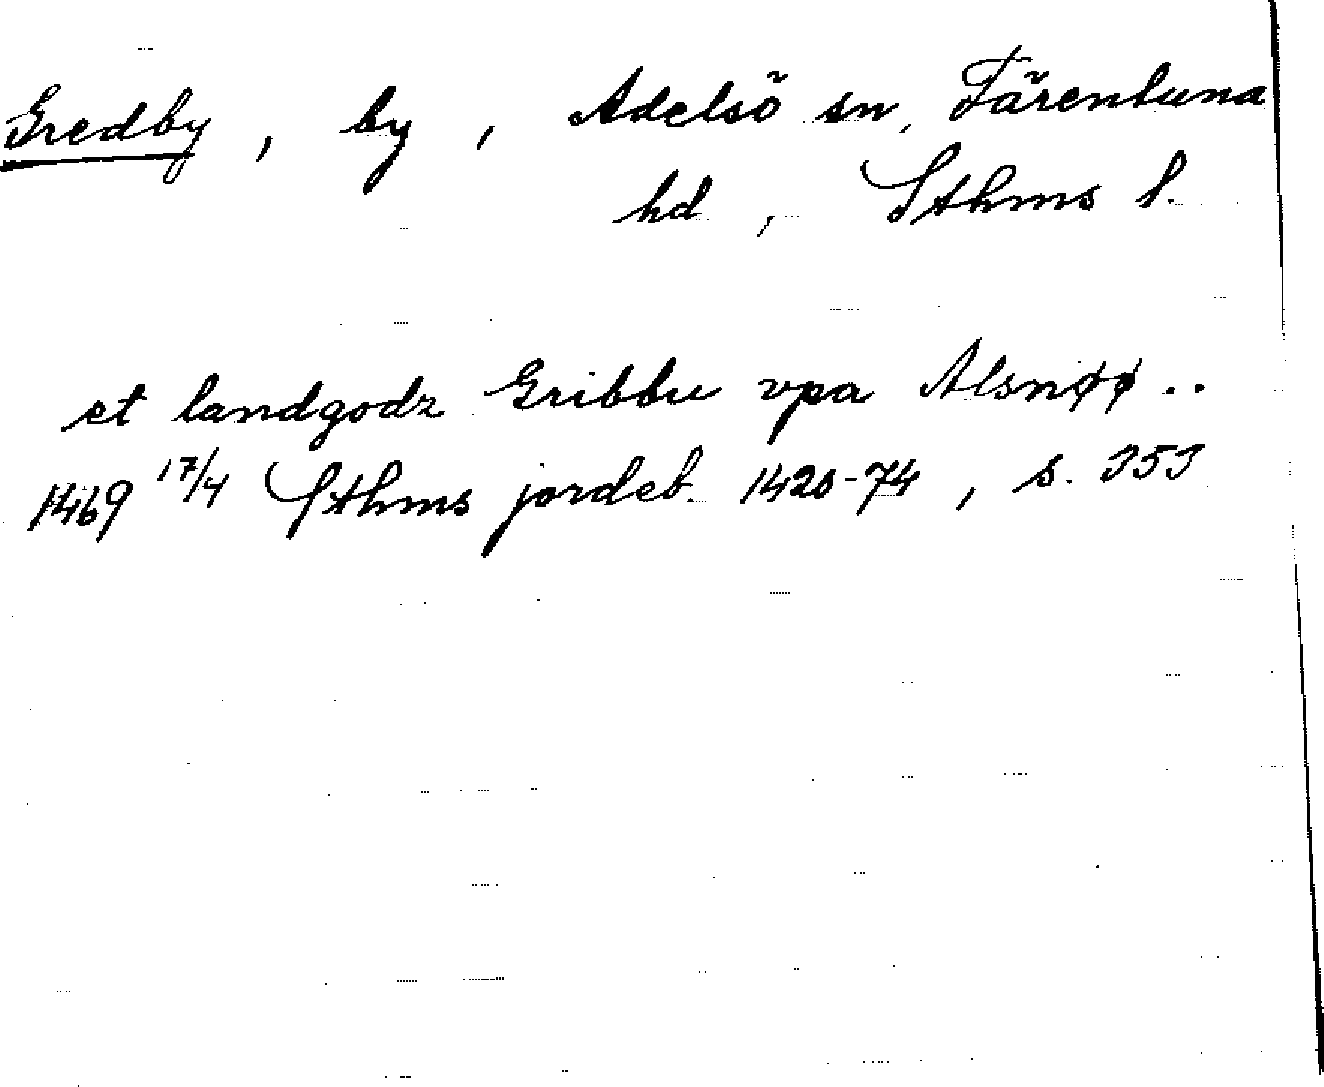 Gredby, by, Adelsö sn, Färentuna
hd, Sthms l.
et landgodz Gribbu vpa Alsnøø ..
1469 17/4 Sthms jordeb. 1420-74, s. 353